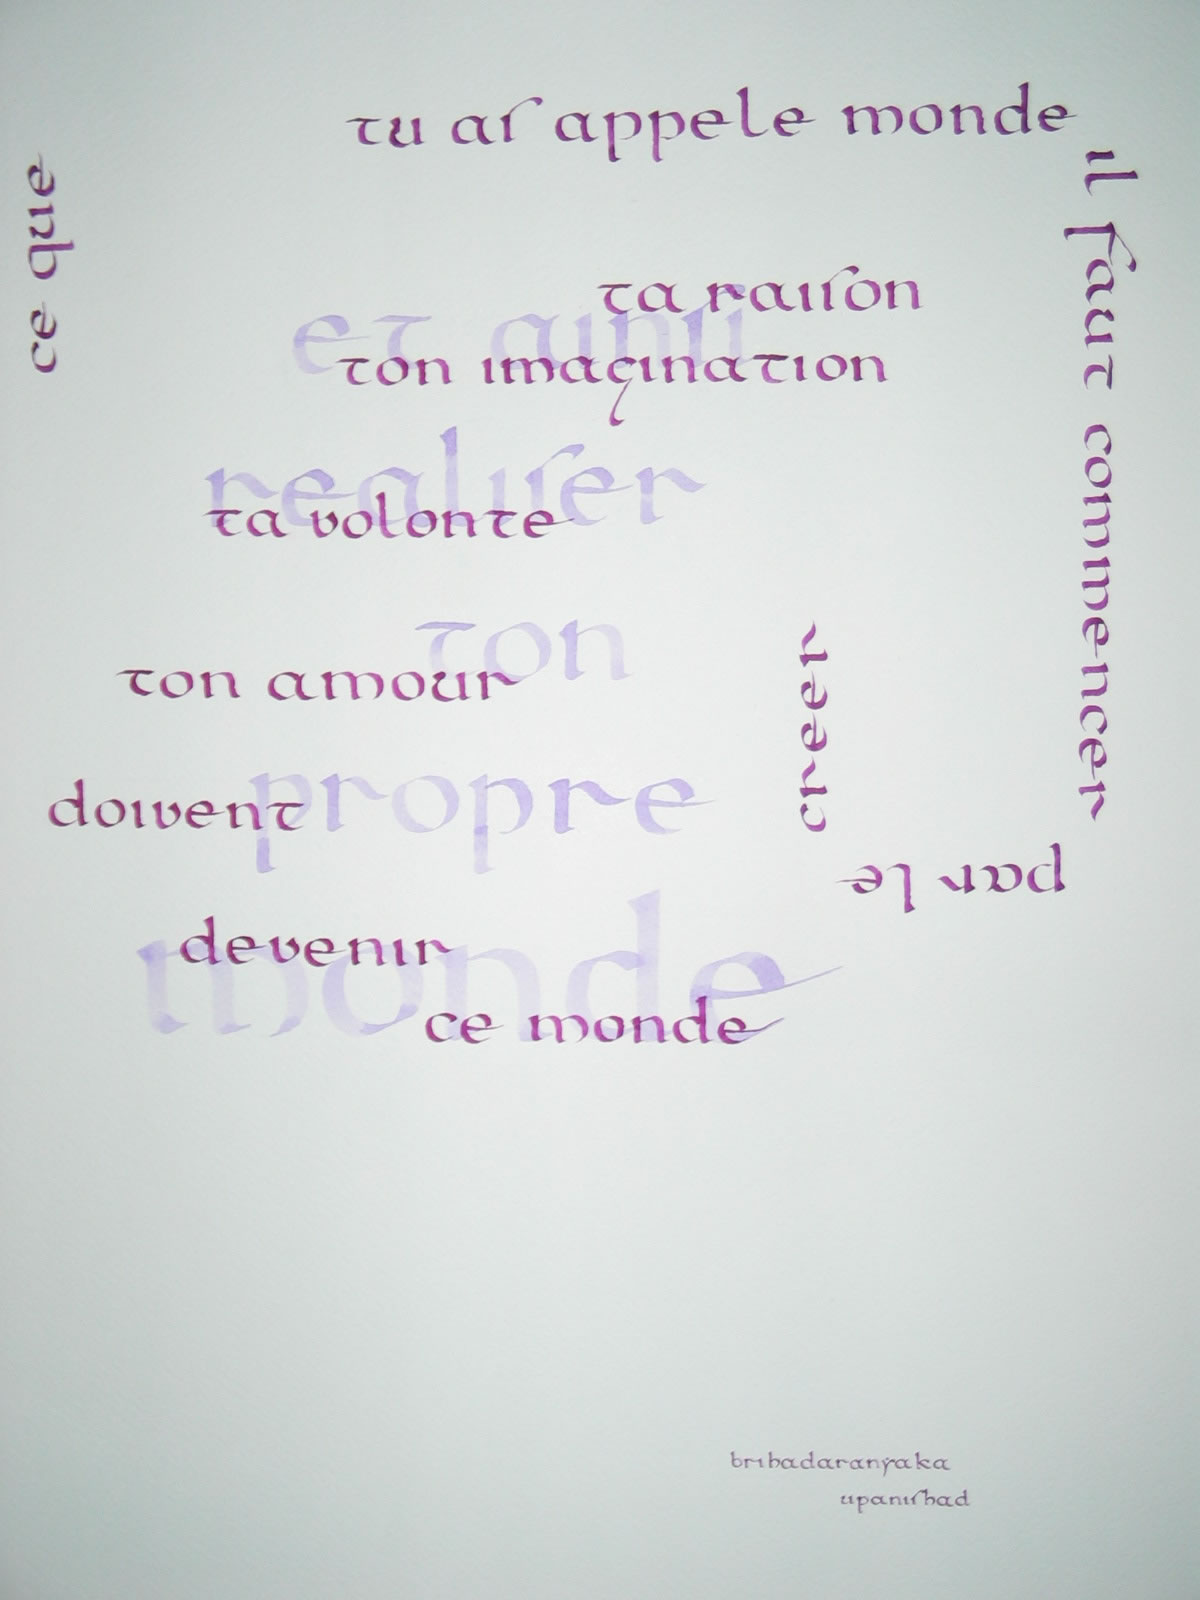 ce que
tu as appele monde
il faut commencer
par le
creer
ta raison
ton imagination
ta volonte
ton amour
doivent
devenir
ce monde
et ainsi
realiser
ton
propre
monde
brihadaranyaka
upanishad